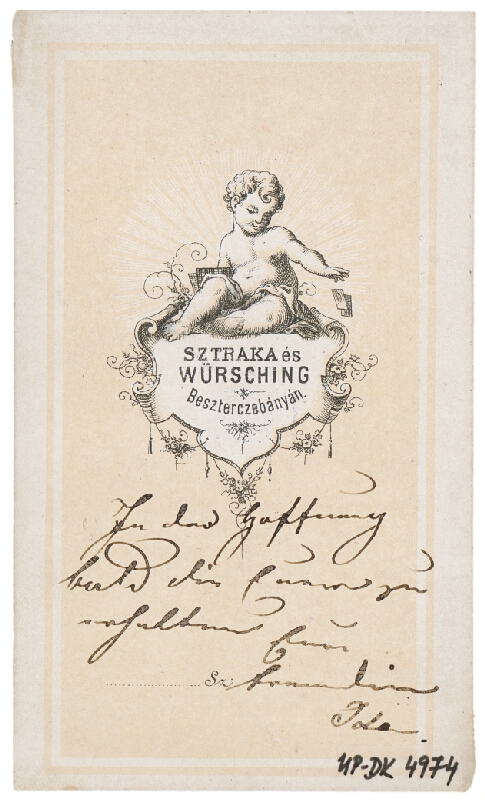 SZTRAKA és
WÜRSCHING
Beszterczebányán.
In der Hoffnung
bald die Eurere zu
erhalten Eure
Sz. Freundin
Ida
UP-DK 4974